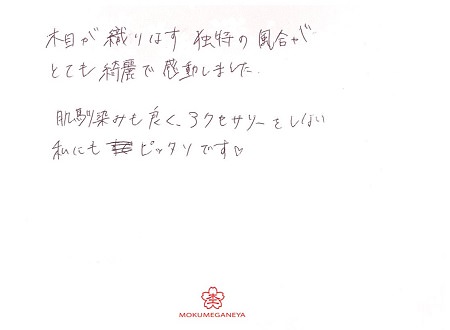 木目が織りなす 独特の風合が
とても綺麗で感動しました.
肌馴染みも良く、アクセサリーをしない
私にも ピッタリです♡
杢
MOKUMEGANEYA